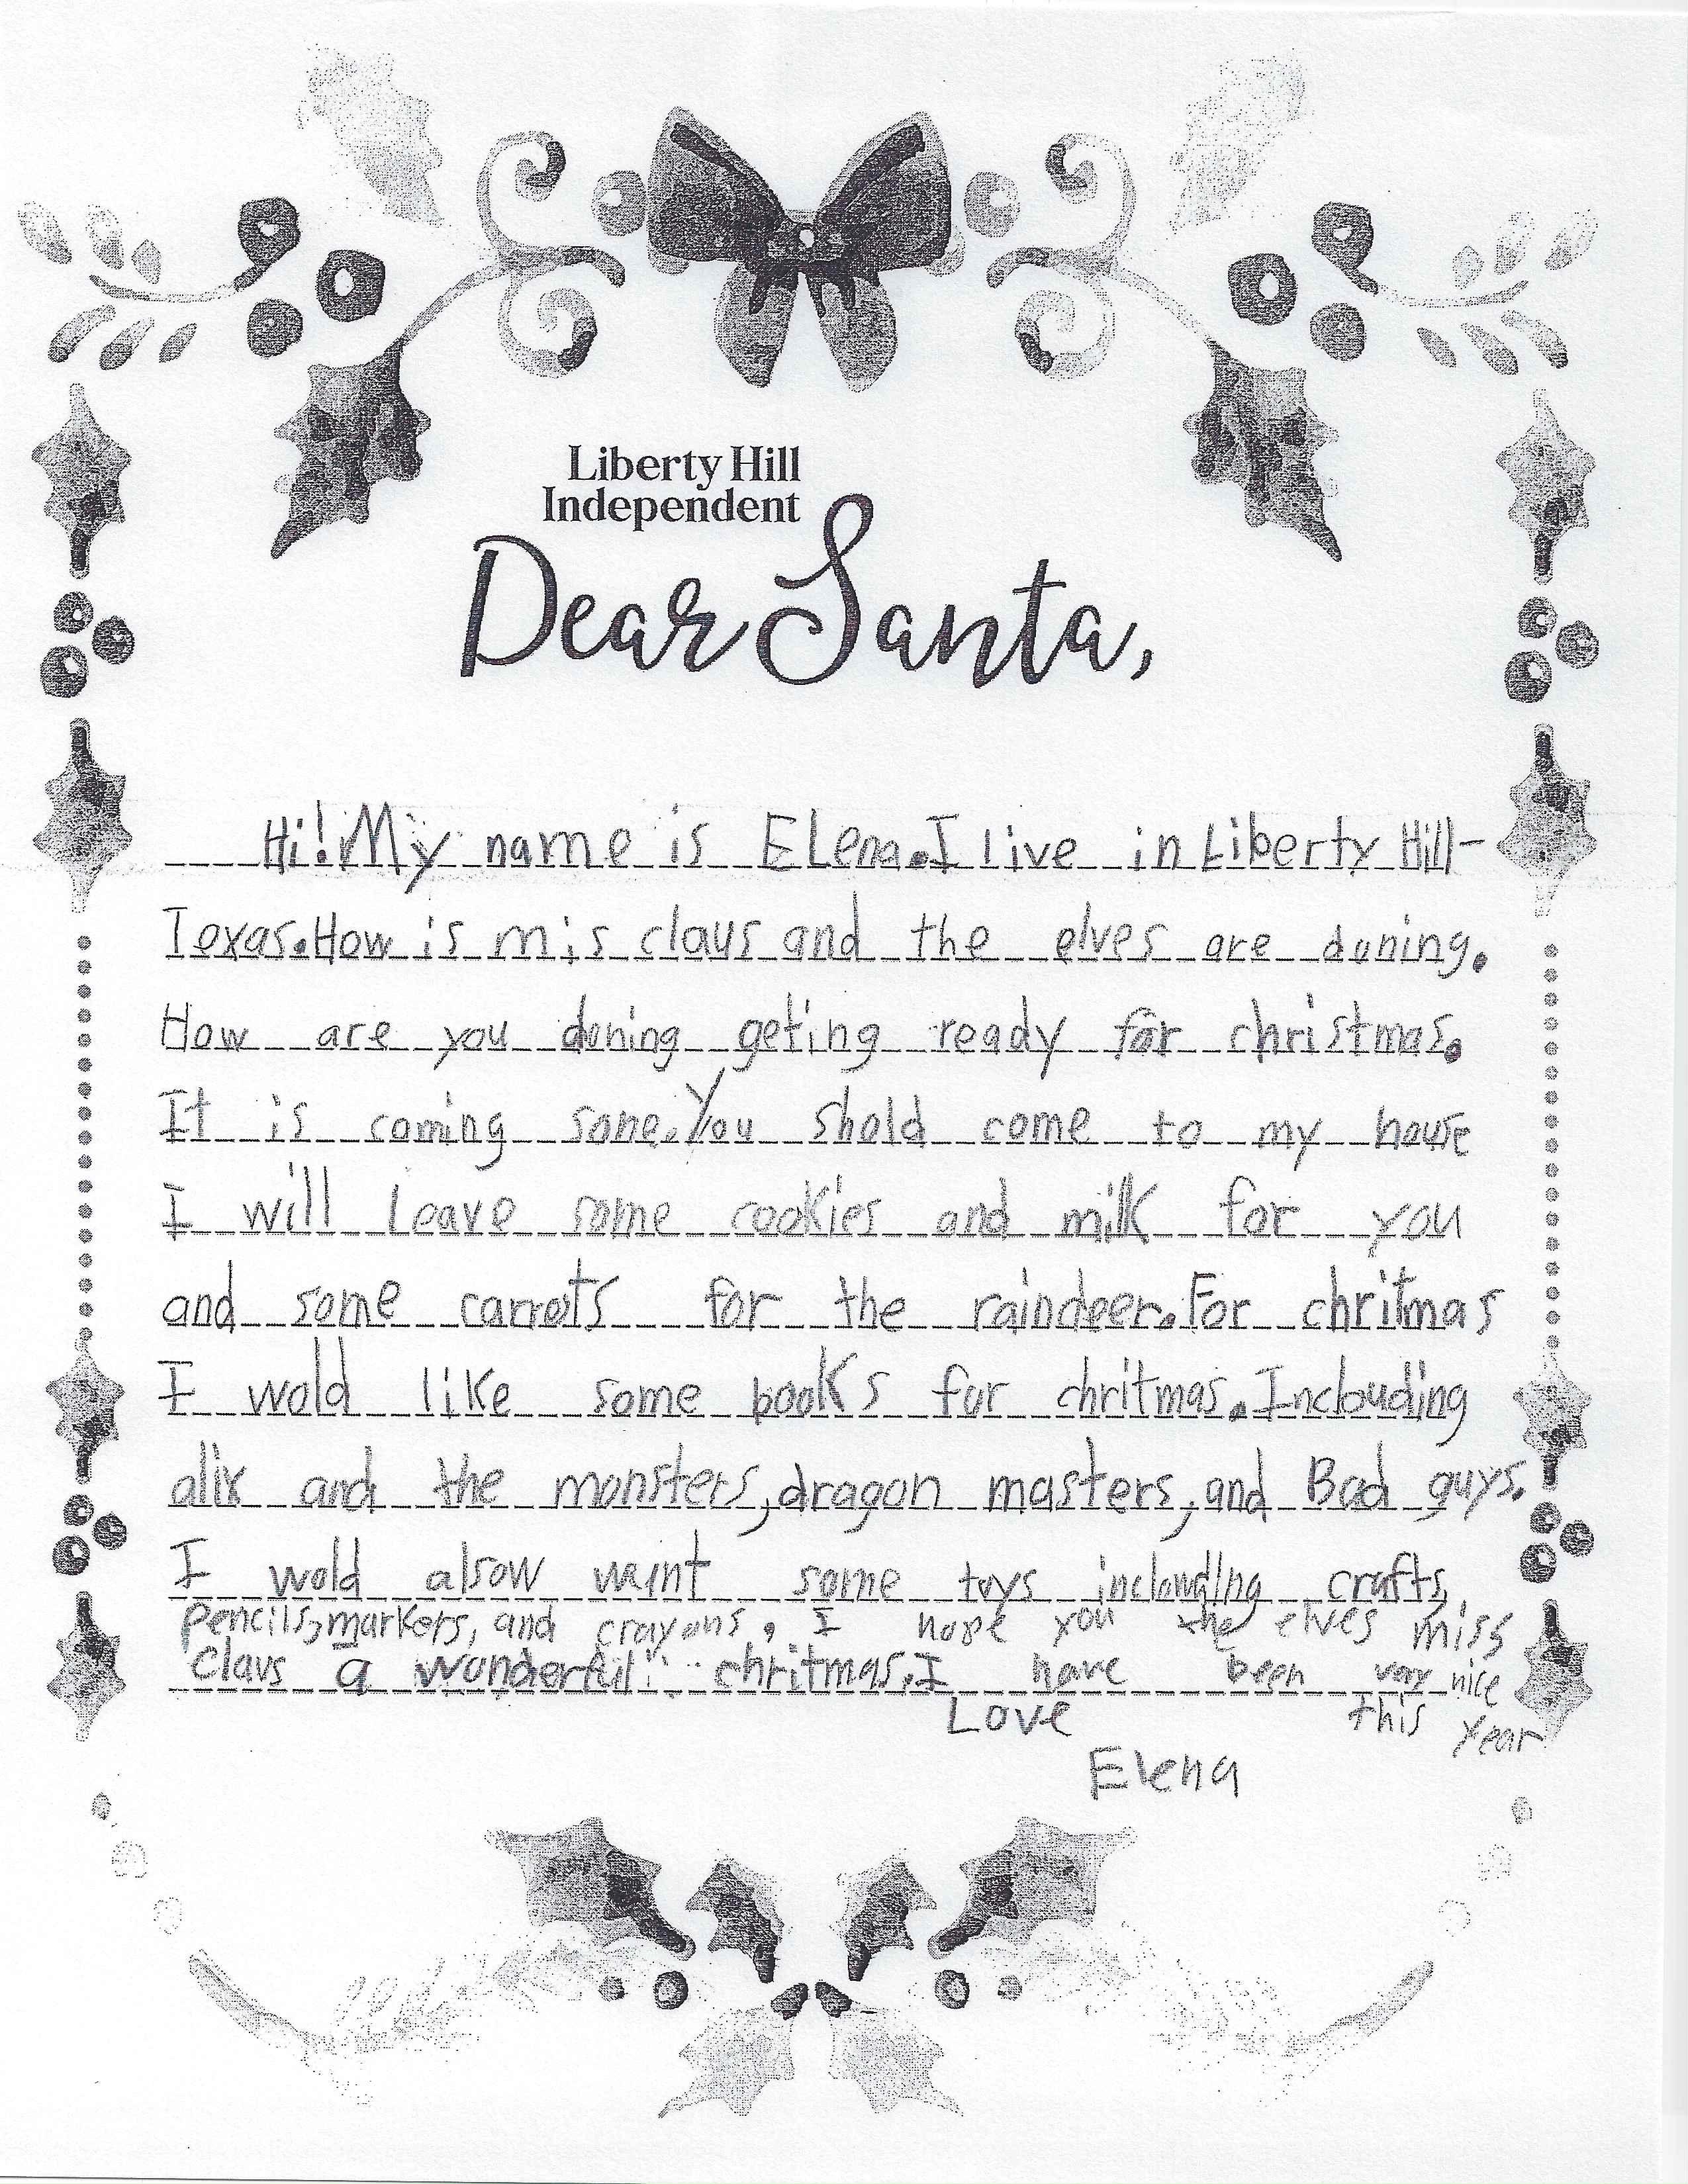 Liberty Hill
Independent
Dear Santa,
Hi! My name is Elena. I live in Liberty Hill-
Texas. How is mis claus and the elves are doning.
How are you doning geting ready for christmas.
It is coming sone. You shold come to my house
I will leave some cookies and milk for you
and some carrots for the raindeer. For chritmas
I wold like some books for chritmas. Inclouding
alix and the monsters, dragon masters, and Bad guys.
I wold alsow waint some toys inclowding crafts,
pencils, markers, and crayons. I hope you the elves miss
Claus a wonderful chritmas. I have been very nice
this year
Love
Elena